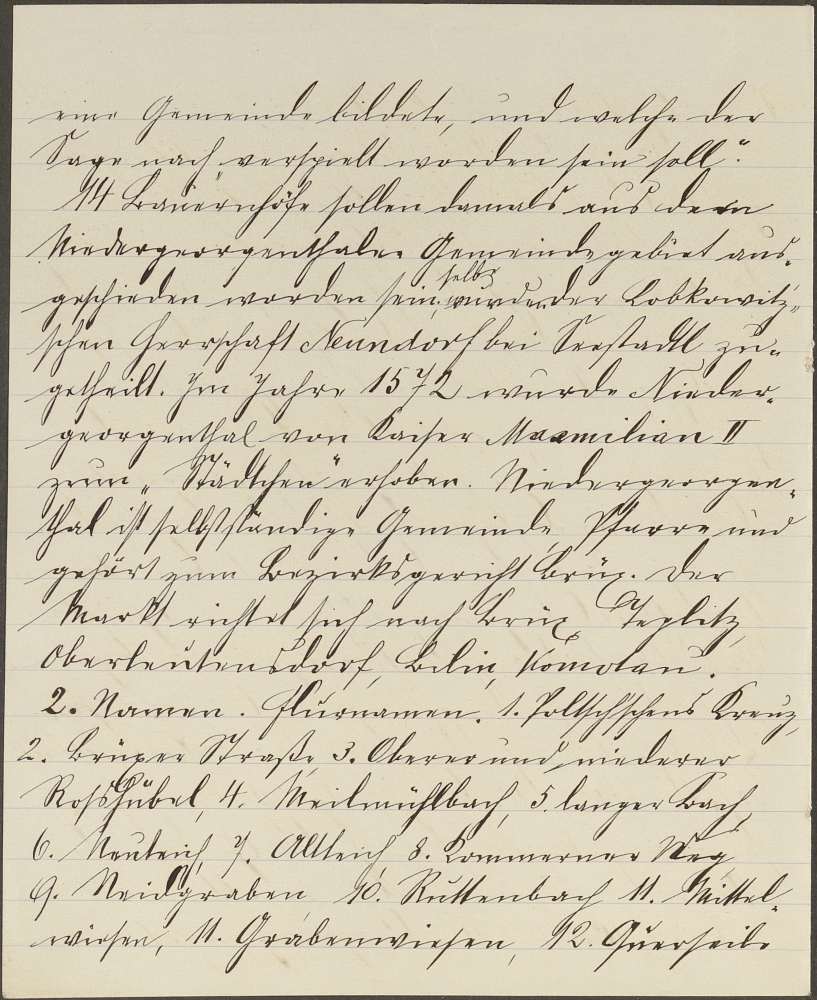 eine Gemeinde bildete, und welche der
Sage nach „verspielt worden sein soll".
14 Bauernhöfe sollen damals aus dem
Niedergeorgenthaler Gemeindegebiet aus-
geschieden worden sein; selbe wurden der Lobkowitz-
schen Herrschaft Neundorf bei Seestadtl zu-
getheilt. Im Jahre 1572 wurde Nieder-
georgenthal von Kaiser Maxmilian II
zum „Städtchen" erhoben. Niedergeorgen-
thal ist selbstständige Gemeinde, Pfarre und
gehört zum Bezirksgericht Brüx. Der
Markt richtet sich nach Brüx, Teplitz,
Oberleutensdorf, Bilin, Komotau.
2. Namen. Flurnamen. 1. Poltschschens Kreuz,
2. Brüxer Straße, 3. Oberer und niederer
Rosshübel, 4. Meilmühlbach, 5. langer Bach,
6. Neuteich, 7. Altteich 8. Kommerner Weg
9. Neidgraben 10. Ruttenbach 11. Mittel-
wiesen, 11. Grabenwiesen, 12. Querseile